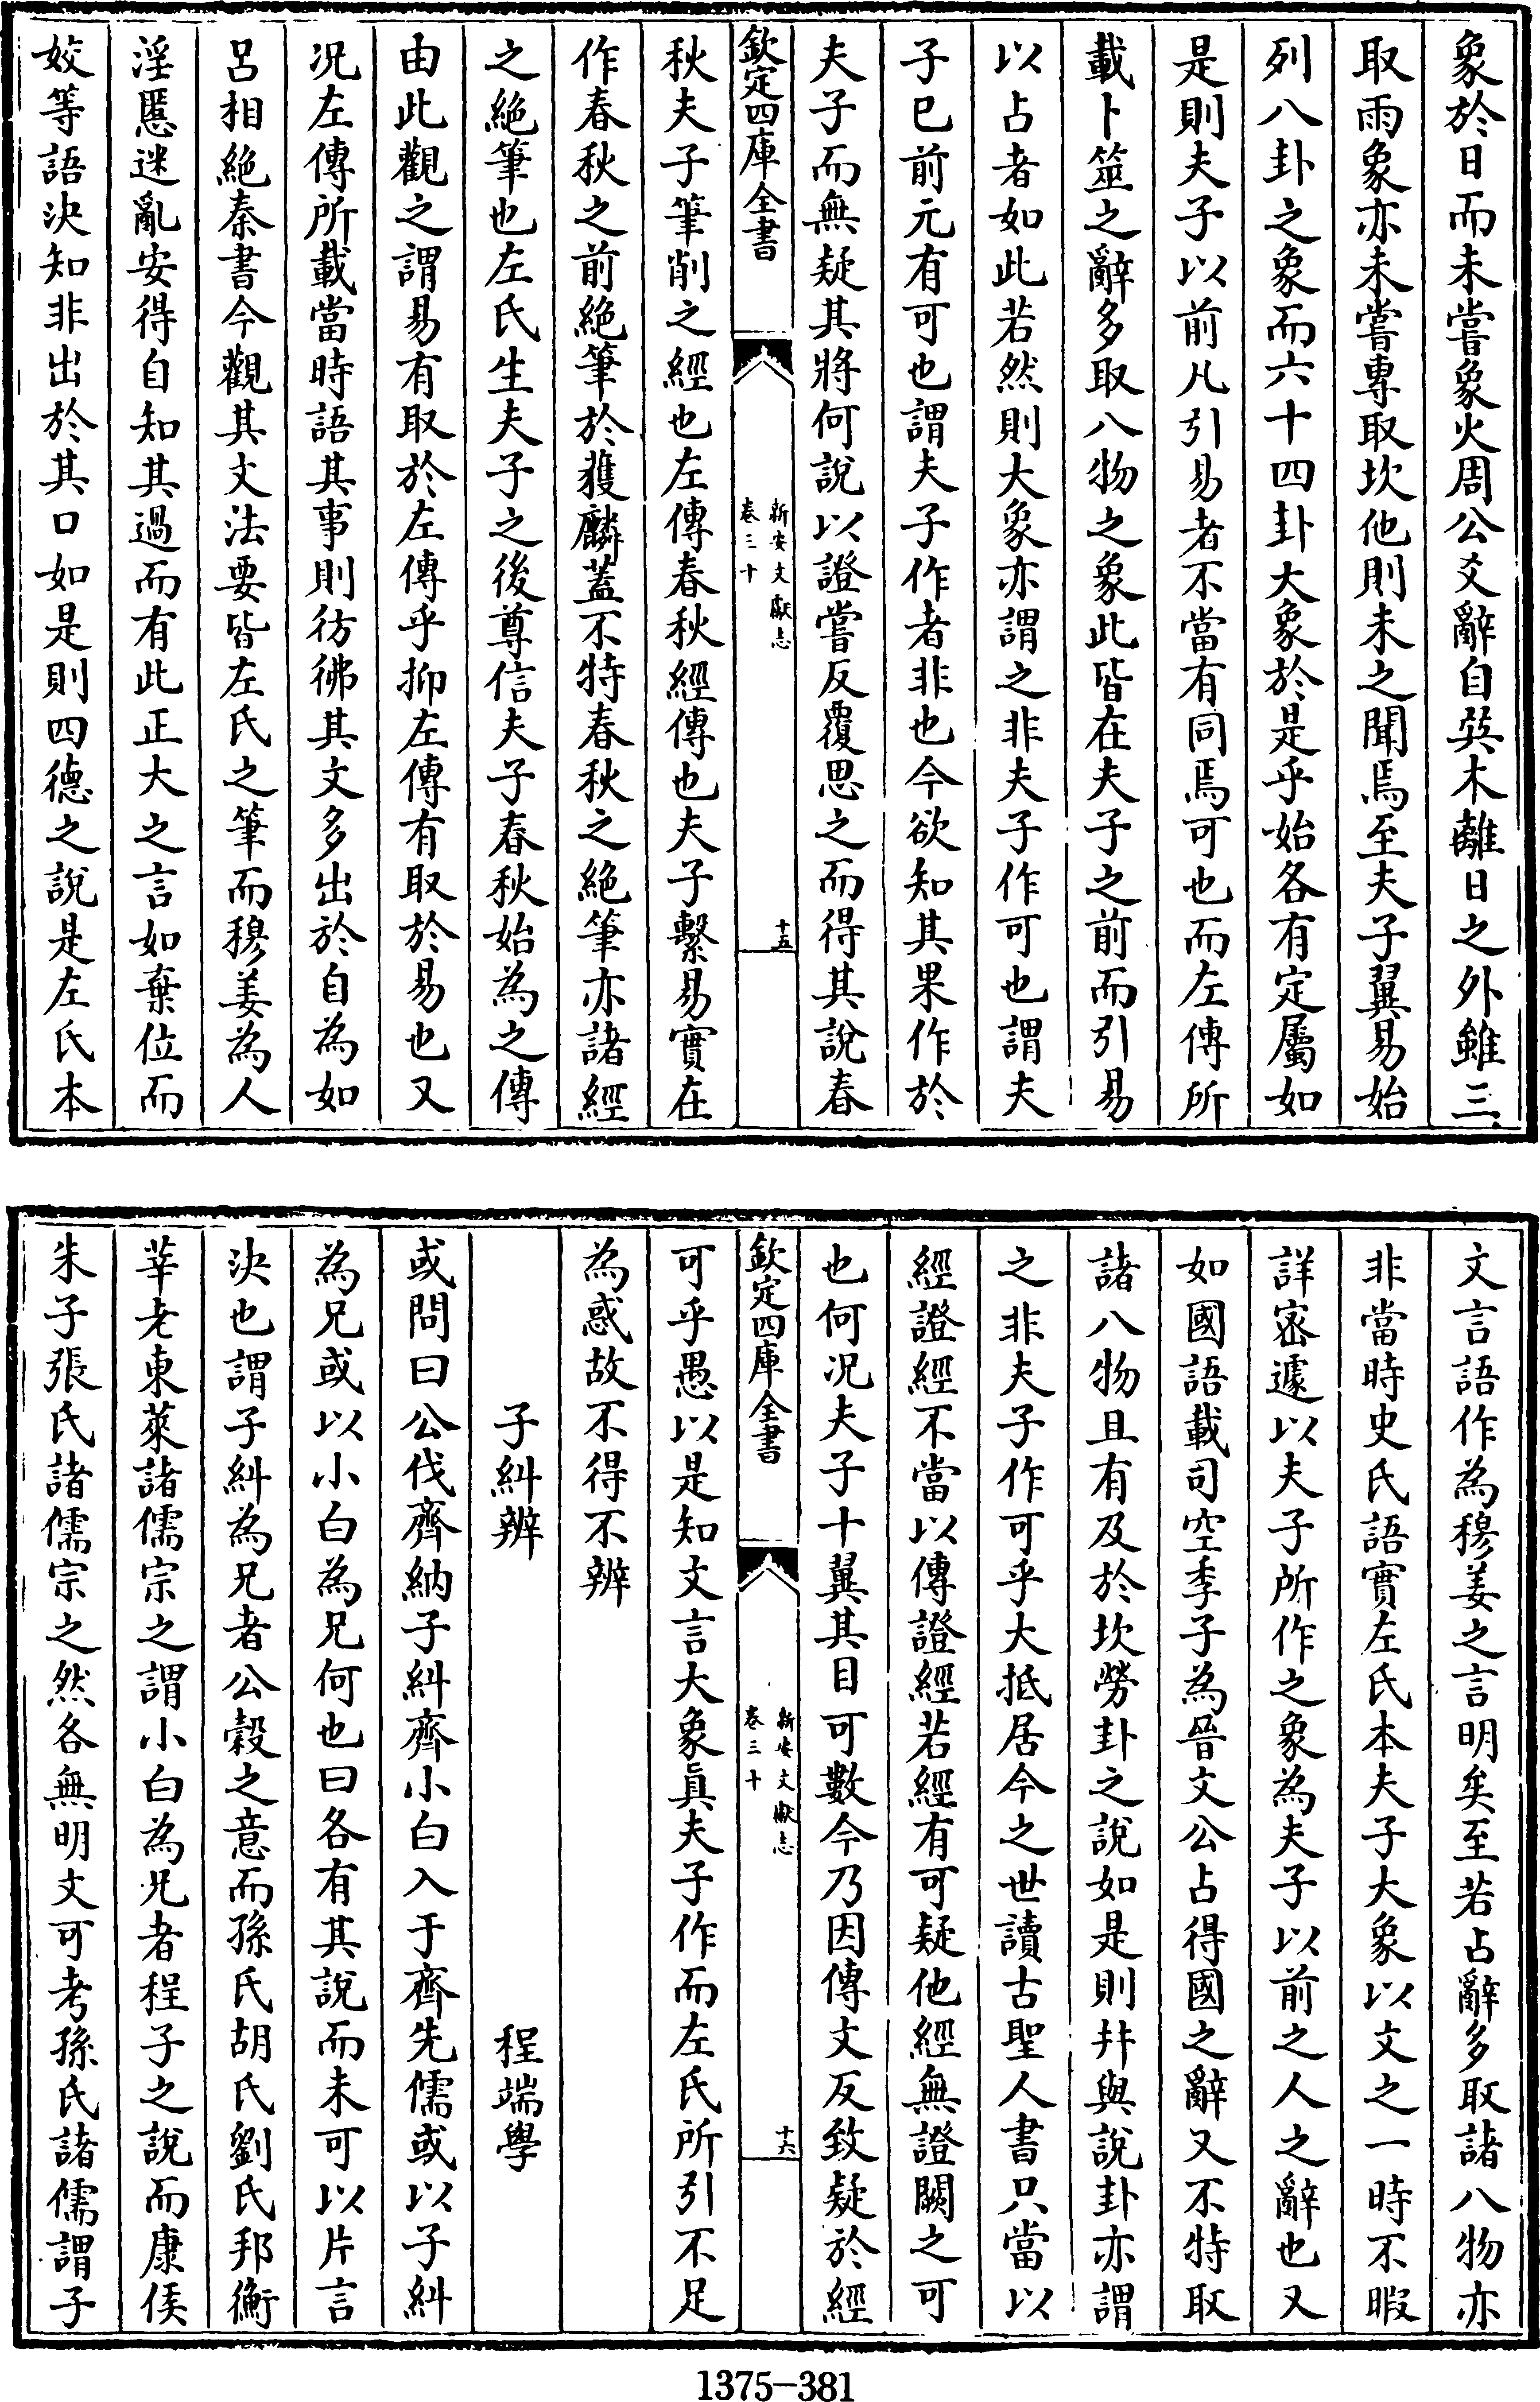 象於日而未嘗象火周公爻辭自巽木離日之外雖三
取雨象亦未嘗專取坎他則未之聞焉至夫子翼易始
列八卦之象而六十四卦大象於是乎始各有定屬如
是則夫子以前凡引易者不當有同焉可也而左傳所
載卜筮之辭多取八物之象此皆在夫子之前而引易
以占者如此若然則大象亦謂之非夫子作可也謂夫
子已前元有可也謂夫子作者非也今欲知其果作於
夫子而無疑其將何說以證嘗反覆思之而得其說春
欽定四庫全書
新安文獻志
卷三十
十五
秋夫子筆削之經也左傳春秋經傳也夫子繫易實在
作春秋之前絕筆於獲麟蓋不特春秋之絕筆亦諸經
之絕筆也左氏生夫子之後尊信夫子春秋始為之傳
由此觀之謂易有取於左傳乎抑左傳有取於易也又
况左傳所載當時語其事則彷彿其文多出於自為如
呂相絕秦書今觀其文法要皆左氏之筆而穆姜為人
淫慝迷亂安得自知其過而有此正大之言如棄位而
姣等語決知非出於其口如是則四德之說是左氏本
文言語作為穆姜之言明矣至若占辭多取諸八物亦
非當時史氏語實左氏本夫子大象以文之一時不暇
詳密遽以夫子所作之象為夫子以前之人之辭也又
如國語載司空季子為晉文公占得國之辭又不特取
諸八物且有及於坎勞卦之說如是則并與說卦亦謂
之非夫子作可乎大抵居今之世讀古聖人書只當以
經證經不當以傳證經若經有可疑他經無證闕之可
也何况夫子十翼其目可數今乃因傳文反致疑於經
欽定四庫全書
新安文獻志
卷三十
十六
可乎愚以是知文言大象真夫子作而左氏所引不足
為惑故不得不辨
子糾辨
程端學
或問曰公伐齊納子糾齊小白入于齊先儒或以子糾
為兄或以小白為兄何也曰各有其說而未可以片言
決也謂子糾為兄者公穀之意而孫氏胡氏劉氏邦衡
莘老東萊諸儒宗之謂小白為兄者程子之說而康侯
朱子張氏諸儒宗之然各無明文可考孫氏諸儒謂子
1375-381